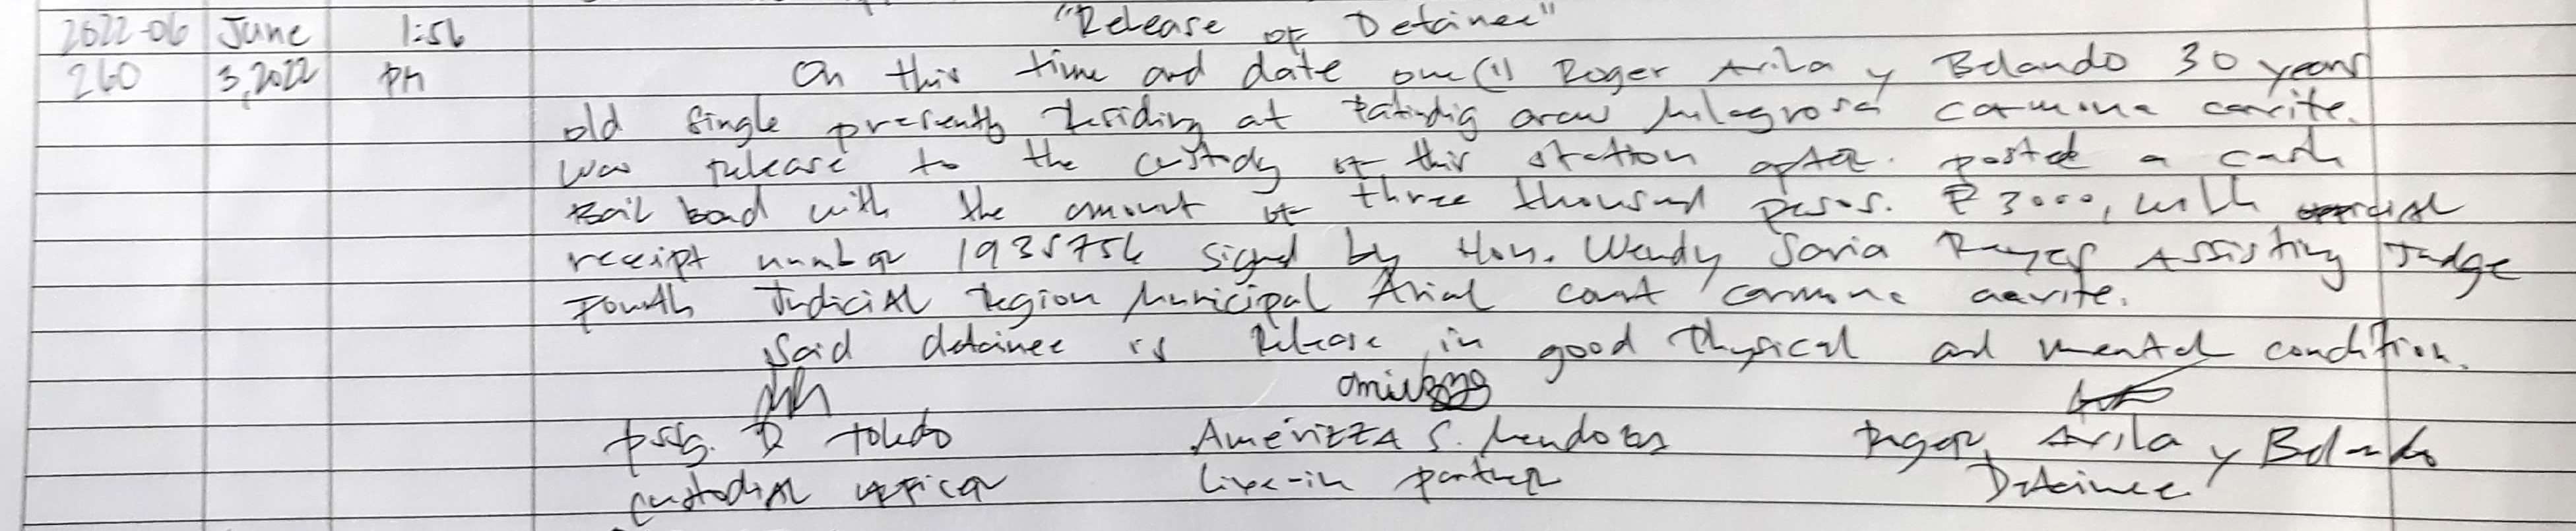 2022-06 June 1:56 "Release of Detainee"
260 3,2022 PM On this time and date one (1) Roger Arila y Belando 30 years
old single presently residing at Patindig araw Milagrosa carmona cavite.
was release to the custody of this station after posted a cash
Bail bond with the amount of three thousand pesos. ₱3000, with official
receipt number 1935756 signed by Hon. Wendy Soria Reyes Assisting Judge
Fourth Judicial Region Municipal Trial court carmona cavite.
Said detainee is Release in good Physical and mental condition.
PSSg. D Toledo AmerizzA S. Mendoza Roger Arila y Belando
custodial officer Live-in partner Detainee